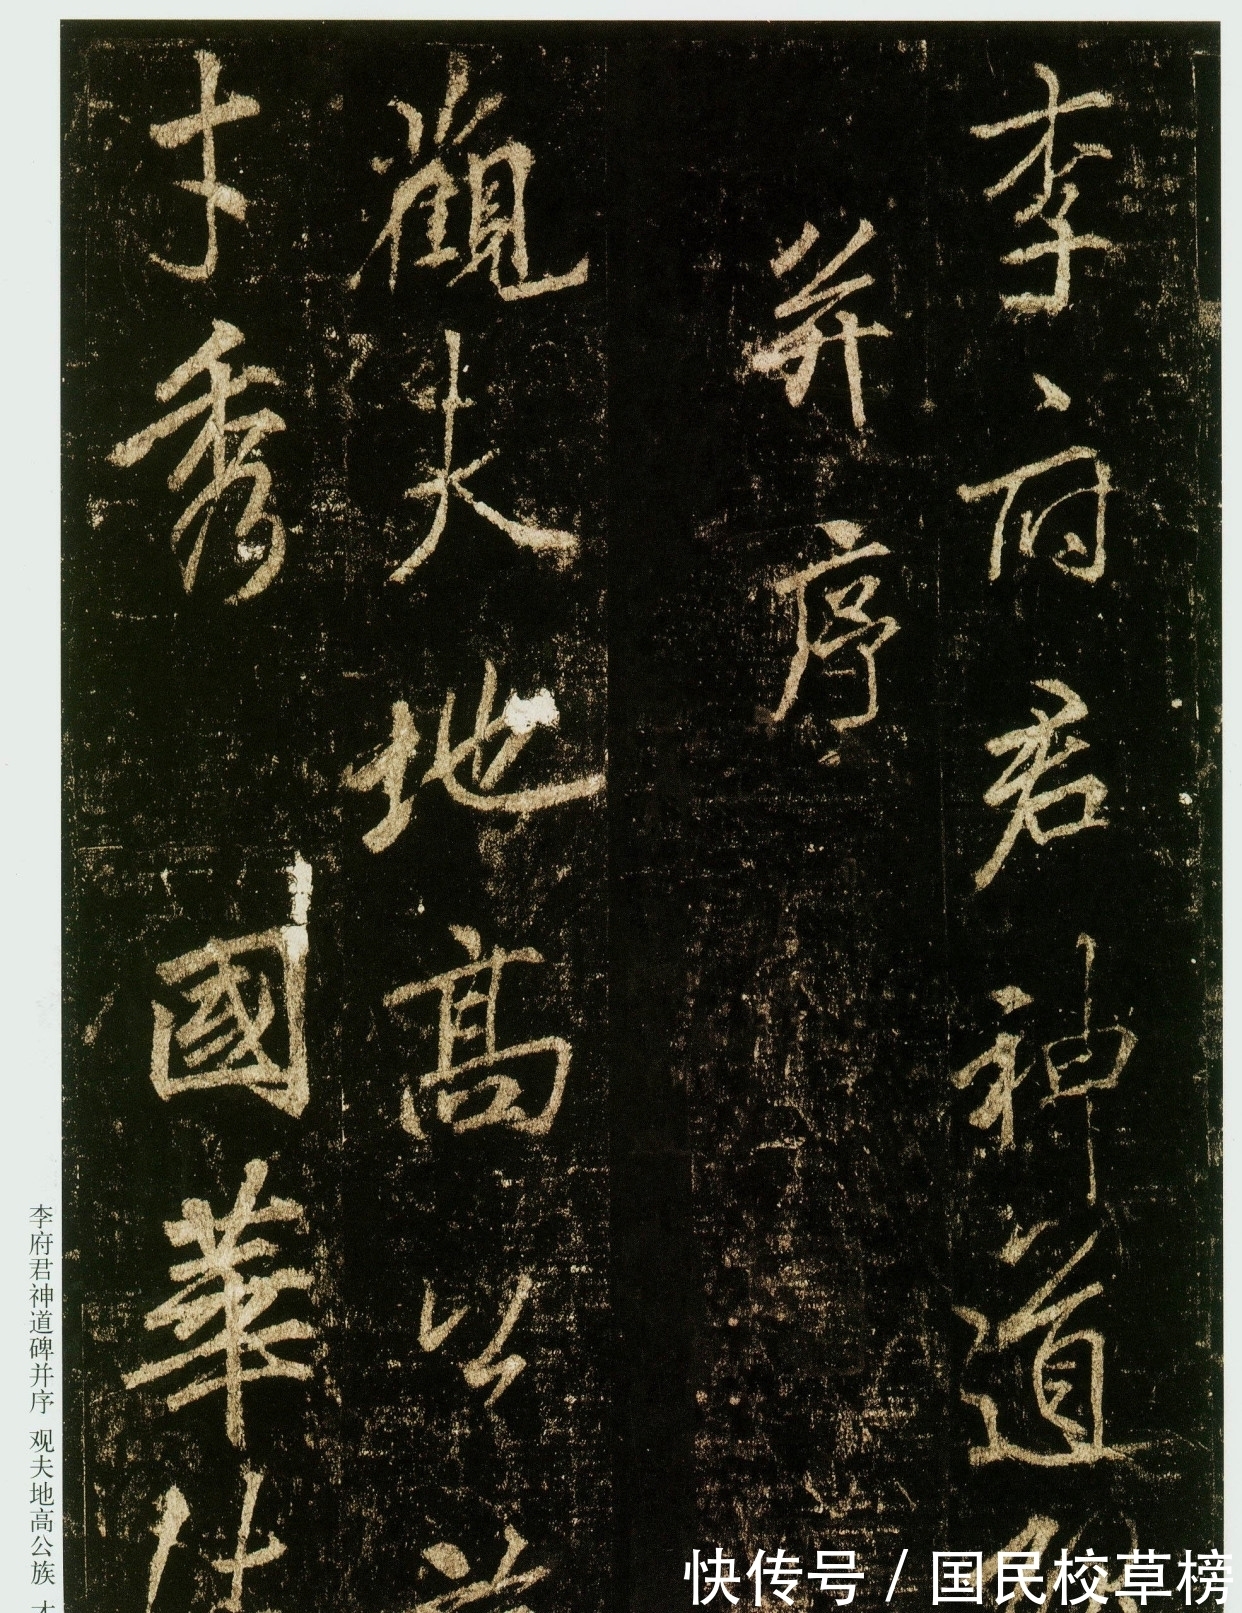 李府君神道
并序
觀夫地高公
才秀國華
李府君神道碑并序 观夫地高公族 才
快传号 / 国民校草榜